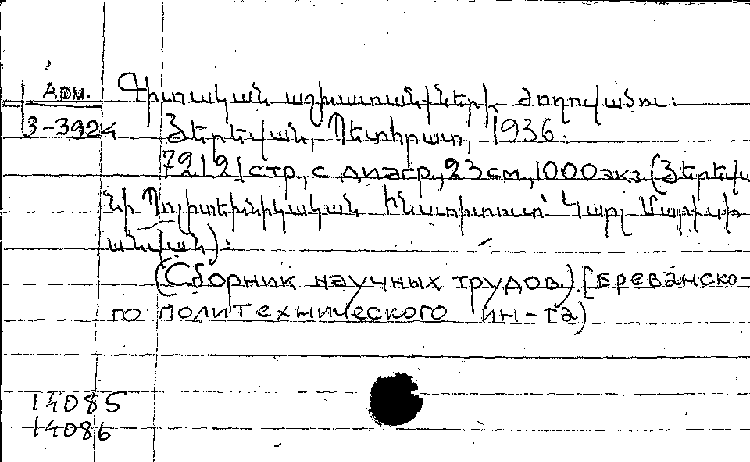 Арм.
3-3924
Գիտական աշխատանքների ժողովածու:
Յերեվան, Պետհրատ, 1936.
72|2|стр., с диагр., 23см., 1000экз. (Յերեվ
նի Պոլիտեխնիկական Ինստիտուտ Կարլ Մարքսի
անվան):
(Сборник научных трудов). [Ереванско-
го политехнического ин-та)
14085
14086